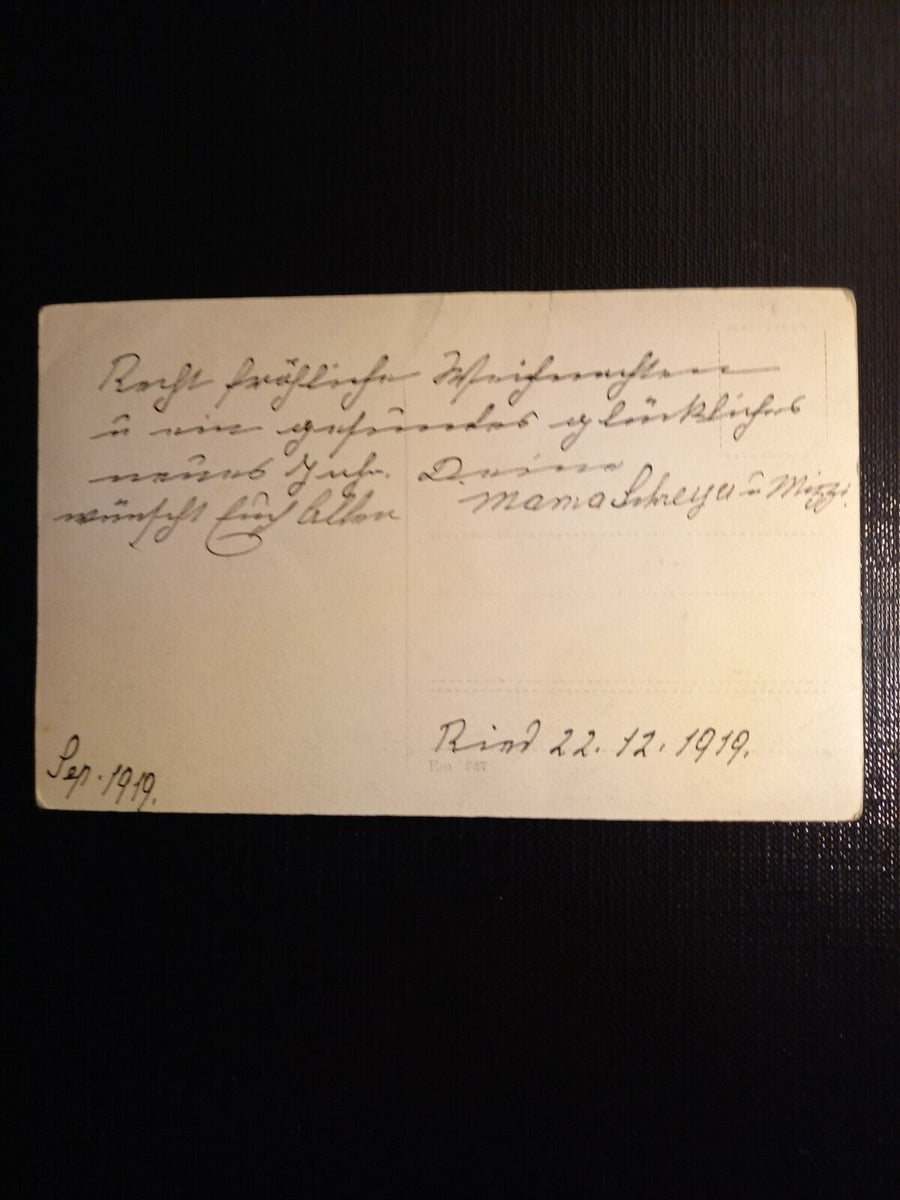 Recht fröhliche Weihnachten
u ein gesundes glückliches
neues Jahr. Deine
wünscht Euch Allen
Mama u Mizzi.
Ried 22. 12. 1919.
Sep. 1919.